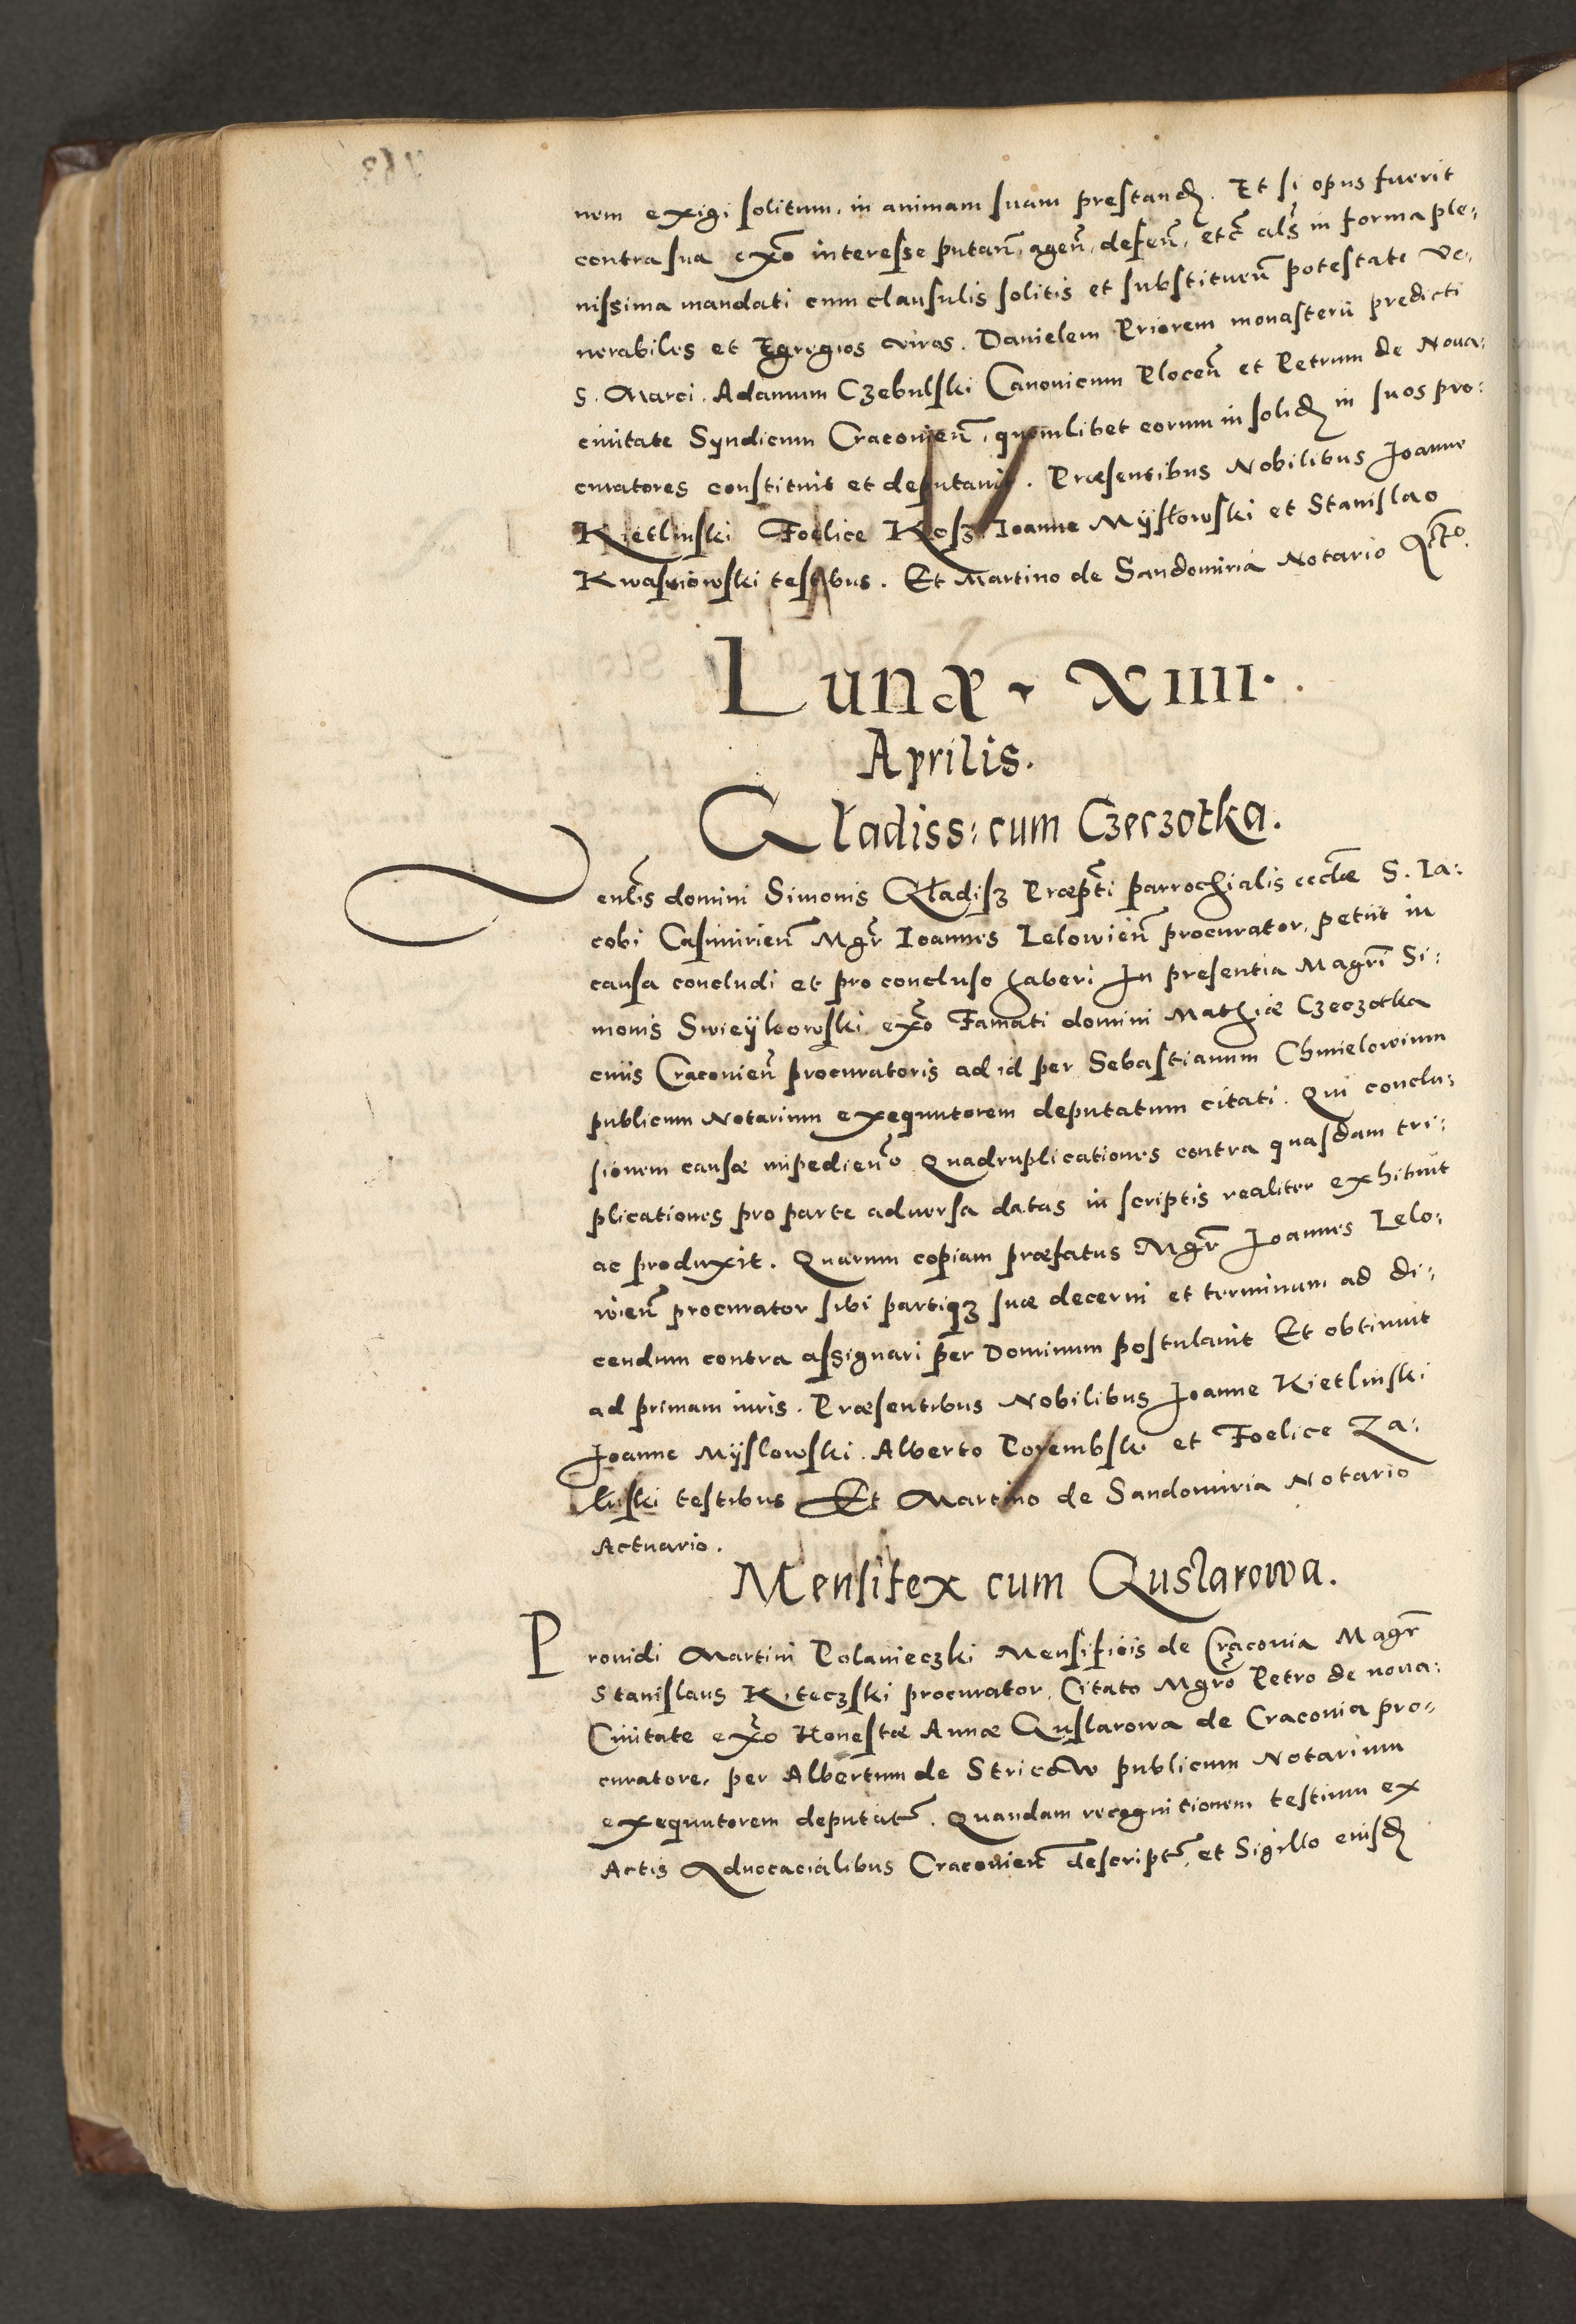 nem exigi solitum, in animam suam prestand. Et si opus fuerit
contra sua exo interesse putan, agen, defen, etc als in forma ple:
nissima mandati cum clausulis solitis et substituen potestate Ve:
nerabiles et Egregios viros. Danielem Priorem monasterii predicti
S. Marci. Adamum Czebulski Canonicum Plocen et Petrum de Noua:
ciuitate Syndicum Cracouien, quemlibet eorum in solid in suos pro:
curatores constituit et deputauit. Præsentibus Nobilibus Joanne
Kietlinski Foelice Kosz Ioanne Mÿsłowski et Stanislao
Kwasniowski testibus. Et Martino de Sandomiria Notario
Lunæ. XIIII.
Aprilis.
Gładiss: cum Czeczotka.
Venlis domini Simonis Gładisz Præpti parrochialis ecclæ S. Ia:
cobi Casimirien Mgr Ioannes Lelowien procurator, petiit in
causa concludi et pro concluso haberi In presentia Magri Si:
monis Swieÿkowski exo Famati domini Mathiæ Czeczotka
ciuis Cracouien procuratoris ad id per Sebastianum Chmielowium
publicum Notarium exequutorem deputatum citati. Qui conclu:
sionem causæ impedieno Quadruplicationes contra quasdam tri:
plicationes pro parte aduersa datas in scriptis realiter exhibuit
ac produxit. Quarum copiam præfatus Mgr Joannes Lelo:
wien procurator sibi partiqz suæ decerni et terminum ad di:
cendum contra assignari per Dominum postulauit Et obtinuit
ad primam iuris. Præsentibus Nobilibus Joanne Kietlinski
Joanne Mÿslowski. Alberto Porembski et Foelice Za:
luski testibus Et Martino de Sandomiria Notario
Actuario.
Mensifex cum Guslarowa.
Prouidi Martini Polanieczki Mensificis de Cracouia Magr
Stanislaus Kiteczski procurator, Citato Mgro Petro de noua:
Ciuitate exo Honestæ Annæ Guslarowa de Cracouia pro:
curatore, per Albertum de Stricow publicum Notarium
exequutorem deputat. Quandam recognitionem testium ex
Actis Aduocacialibus Cracouien descript, et Sigillo eiusd